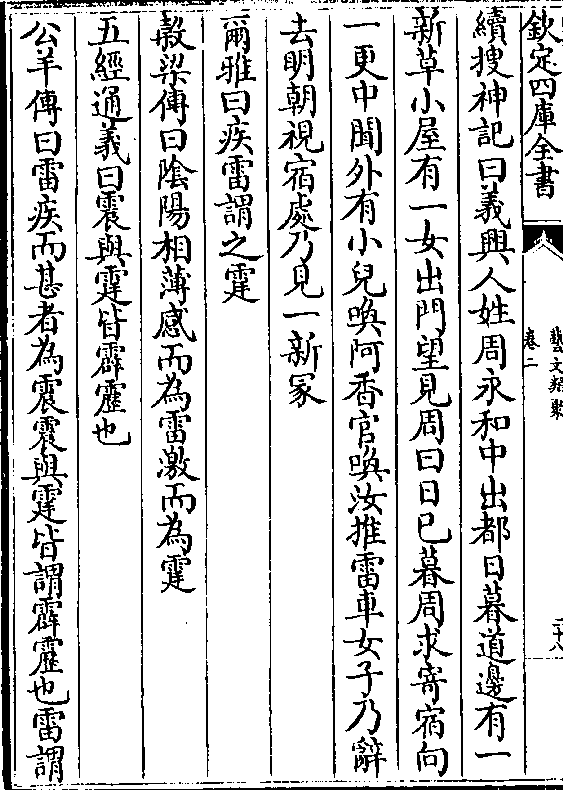 欽定四庫全書
藝文類聚
卷二
二十八
續搜神記曰義興人姓周永和中出都日暮道邊有一
新草小屋有一女出門望見周曰日已暮周求寄宿向
一更中聞外有小兒喚阿香官喚汝推雷車女子乃辭
去明朝視宿處乃見一新冢
爾雅曰疾雷謂之霆
榖梁傳曰陰陽相薄感而為雷激而為霆
五經通義曰震與霆皆霹靂也
公羊傳曰雷疾而甚者為震震與霆皆謂霹靂也雷謂